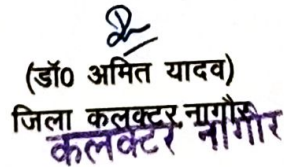 (डॉ0 अमित यादव)
जिला कलक्टर, नागौर
कलक्टर नागौर